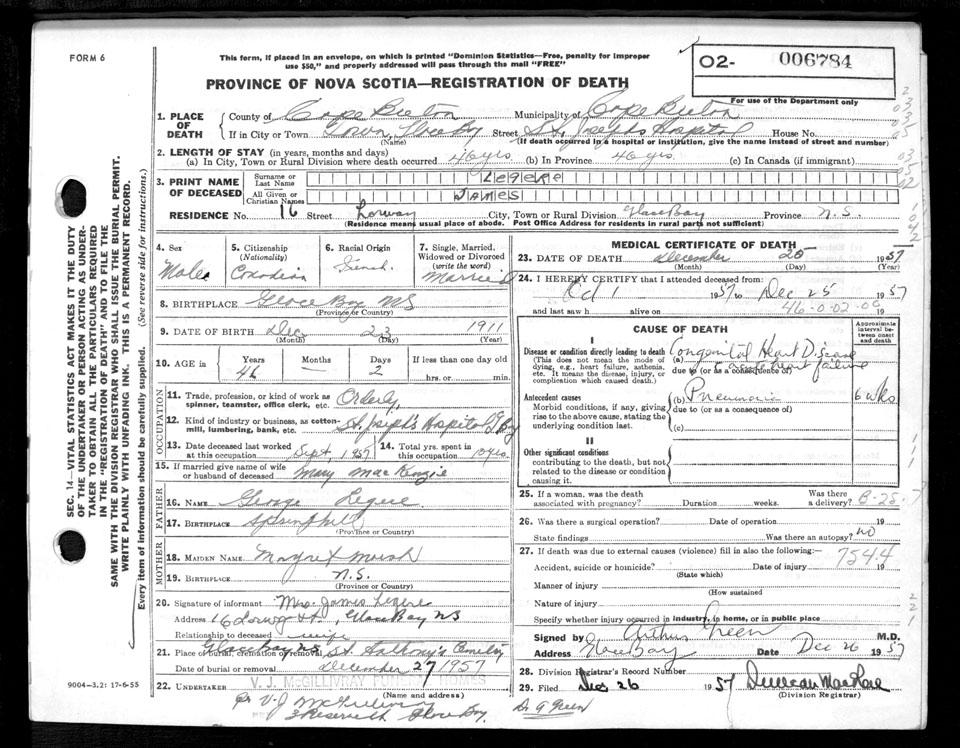 FORM 6
This form, if placed in an envelope, on which is printed "Dominion Statistics—Free, penalty for improper
use $50," and properly addressed will pass through the mail "FREE"
PROVINCE OF NOVA SCOTIA—REGISTRATION OF DEATH
O2- 006784
For use of the Department only
1. PLACE OF DEATH
County of Cape Breton Municipality of Cape Breton
If in City or Town Town, Glace Bay Street St. Joseph's Hospital House No.
(Name) (If death occurred in a hospital or institution, give the name instead of street and number)
2. LENGTH OF STAY (in years, months and days)
(a) In City, Town or Rural Division where death occurred 46 yrs. (b) In Province 46 yrs. (c) In Canada (if immigrant)
3. PRINT NAME OF DECEASED
Surname or Last Name LEGERE
All Given or Christian Names JAMES
RESIDENCE No. 16 Street Lorway City, Town or Rural Division Glace Bay Province N.S.
(Residence means usual place of abode. Post Office Address for residents in rural parts not sufficient)
4. Sex Male
5. Citizenship (Nationality) Canadian
6. Racial Origin French
7. Single, Married, Widowed or Divorced (write the word) Married
8. BIRTHPLACE Glace Bay NS
(Province or Country)
9. DATE OF BIRTH Dec 23 1911
(Month) (Day) (Year)
10. AGE in Years 46 Months — Days 2 If less than one day old
hrs. or min.
OCCUPATION
11. Trade, profession, or kind of work as spinner, teamster, office clerk, etc. Orderly
12. Kind of industry or business, as cotton-mill, lumbering, bank, etc. St. Joseph's Hospital G Bay
13. Date deceased last worked at this occupation Sept 1957
14. Total yrs. spent in this occupation 10 yrs.
15. If married give name of wife or husband of deceased Mary MacKenzie
FATHER
16. NAME George Legere
17. BIRTHPLACE Springhill
(Province or Country)
MOTHER
18. MAIDEN NAME Marsh
19. BIRTHPLACE N.S.
(Province or Country)
20. Signature of informant Mrs. James Legere
Address 16 Lorway St., Glace Bay NS
Relationship to deceased wife
21. Place of burial, cremation or removal Glace Bay NS St. Anthony's Cemetery
Date of burial or removal December 27 1957
22. UNDERTAKER V. J. McGILLIVRAY FUNERAL HOMES
(Name and address)
Per V.J. McGillivray
3 Reserve St Glace Bay
9004-3.2: 17-6-55
MEDICAL CERTIFICATE OF DEATH
23. DATE OF DEATH December 25 1957
(Month) (Day) (Year)
24. I HEREBY CERTIFY that I attended deceased from:
Oct 1 1957 to Dec 25 1957
and last saw h alive on 19
46-0-02-00
CAUSE OF DEATH
Approximate interval between onset and death
I
Disease or condition directly leading to death
(This does not mean the mode of dying, e.g., heart failure, asthenia, etc. It means the disease, injury, or complication which caused death.)
(a) Congenital Heart Disease
due to (or as a consequence of) heart failure
Antecedent causes
Morbid conditions, if any, giving rise to the above cause, stating the underlying condition last.
(b) Pneumonia 6 wks
due to (or as a consequence of)
(c)
II
Other significant conditions
contributing to the death, but not related to the disease or condition causing it.
25. If a woman, was the death associated with pregnancy? Duration weeks. Was there a delivery?
26. Was there a surgical operation? Date of operation 19
State findings Was there an autopsy? NO
27. If death was due to external causes (violence) fill in also the following:—
754.4
Accident, suicide or homicide? Date of injury 19
(State which)
Manner of injury
(How sustained
Nature of injury
Specify whether injury occurred in industry, in home, or in public place
Signed by Arthur Green M.D.
Address Glace Bay Date Dec 26 1957
28. Division Registrar's Record Number
29. Filed Dec 26 1957 Duncan MacRae
(Division Registrar)
Dr A Green
SEC. 14—VITAL STATISTICS ACT MAKES IT THE DUTY
OF THE UNDERTAKER OR PERSON ACTING AS UNDER-
TAKER TO OBTAIN ALL THE PARTICULARS REQUIRED
IN THE "REGISTRATION OF DEATH" AND TO FILE THE
SAME WITH THE DIVISION REGISTRAR WHO SHALL ISSUE THE BURIAL PERMIT.
WRITE PLAINLY WITH UNFADING INK. THIS IS A PERMANENT RECORD.
Every item of information should be carefully supplied. (See reverse side for instructions.)